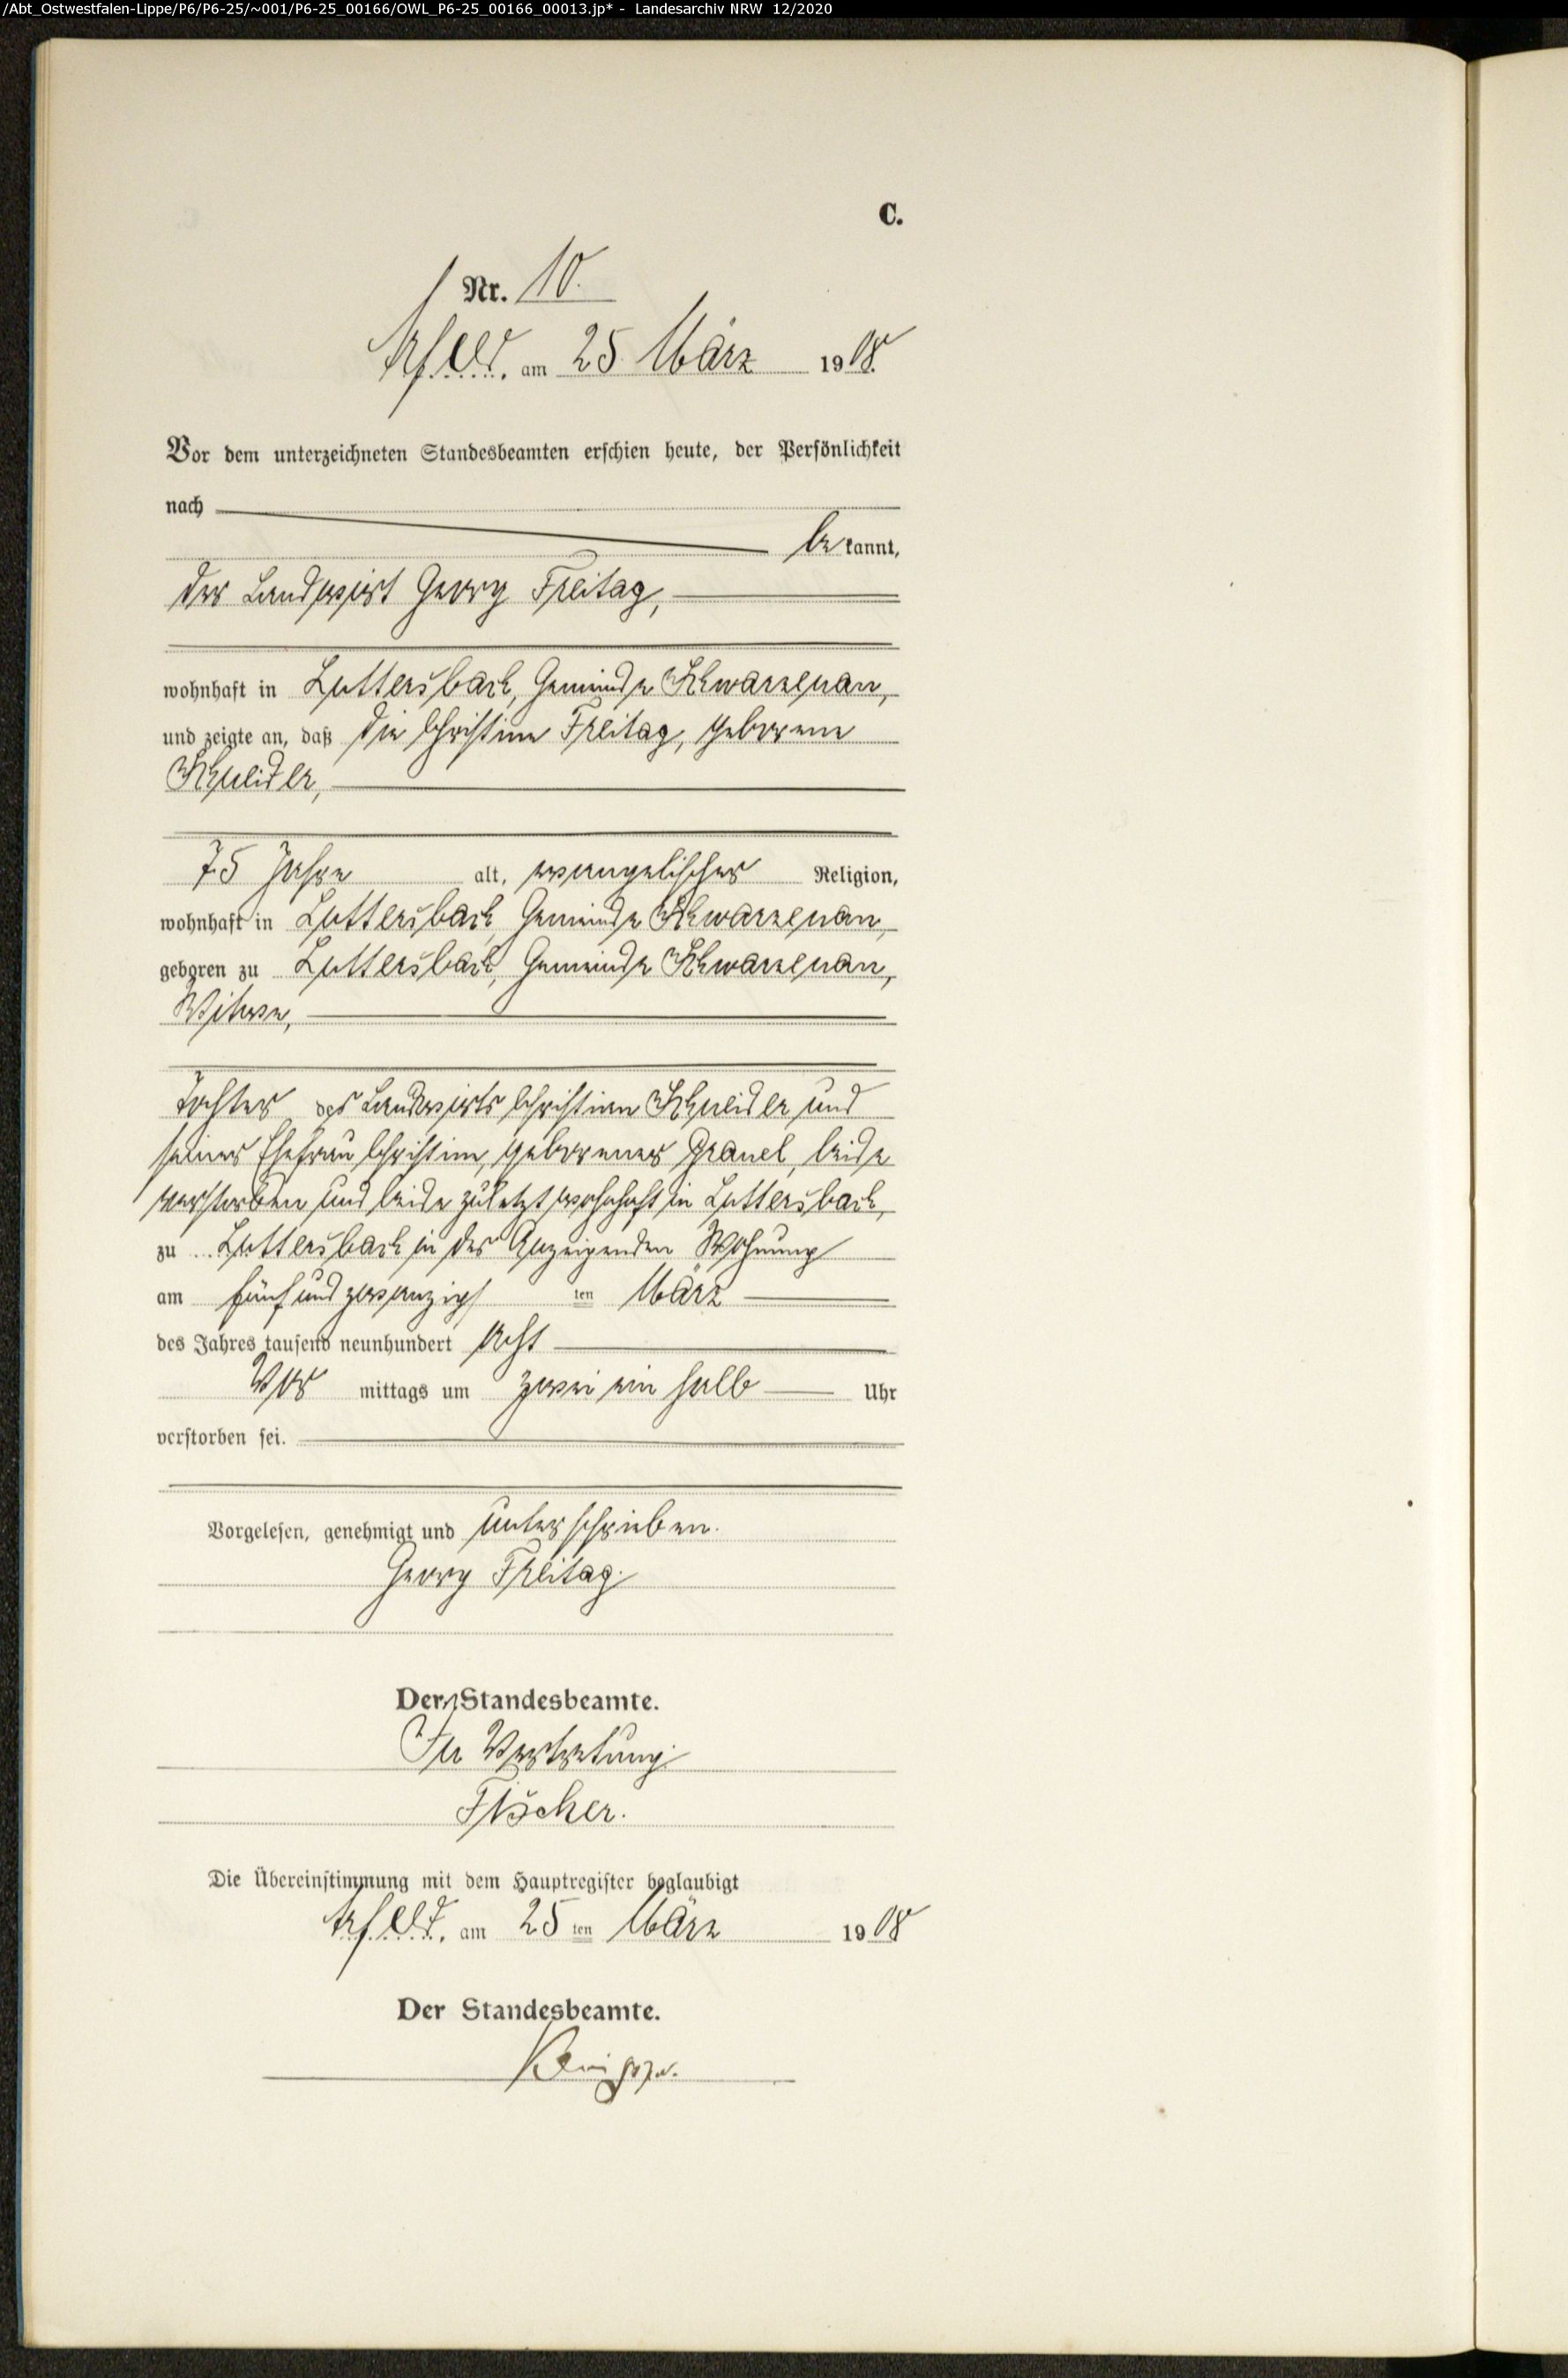 /Abt_Ostwestfalen-Lippe/P6/P6-25/~001/P6-25_00166/OWL_P6-25_00166_00013.jp* - Landesarchiv NRW 12/2020
C.
Nr. 10.
Arfeld, am 25. März 1908.
Vor dem unterzeichneten Standesbeamten erschien heute, der Persönlichkeit
nach
bekannt,
der Landwirt Georg Freitag,
wohnhaft in Luttersbach, Gemeinde Schwarzenau,
und zeigte an, daß die Christine Freitag, geborene
Schneider,
75 Jahre alt, evangelischer Religion,
wohnhaft in Luttersbach, Gemeinde Schwarzenau,
geboren zu Luttersbach, Gemeinde Schwarzenau,
Witwe,
Tochter des Landwirts Christian Schneider und
seiner Ehefrau Christine, geborener Grauel, beide
verstorben und beide zuletzt wohnhaft in Luttersbach,
zu Luttersbach in des Anzeigenden Wohnung
am fünfundzwanzigsten März
des Jahres tausend neunhundert acht
Vormittags um zwei ein halb Uhr
verstorben sei.
Vorgelesen, genehmigt und unterschrieben.
Georg Freitag.
Der Standesbeamte.
In Vertretung:
Fischer.
Die Übereinstimmung mit dem Hauptregister beglaubigt
Arfeld, am 25ten März 1908
Der Standesbeamte.